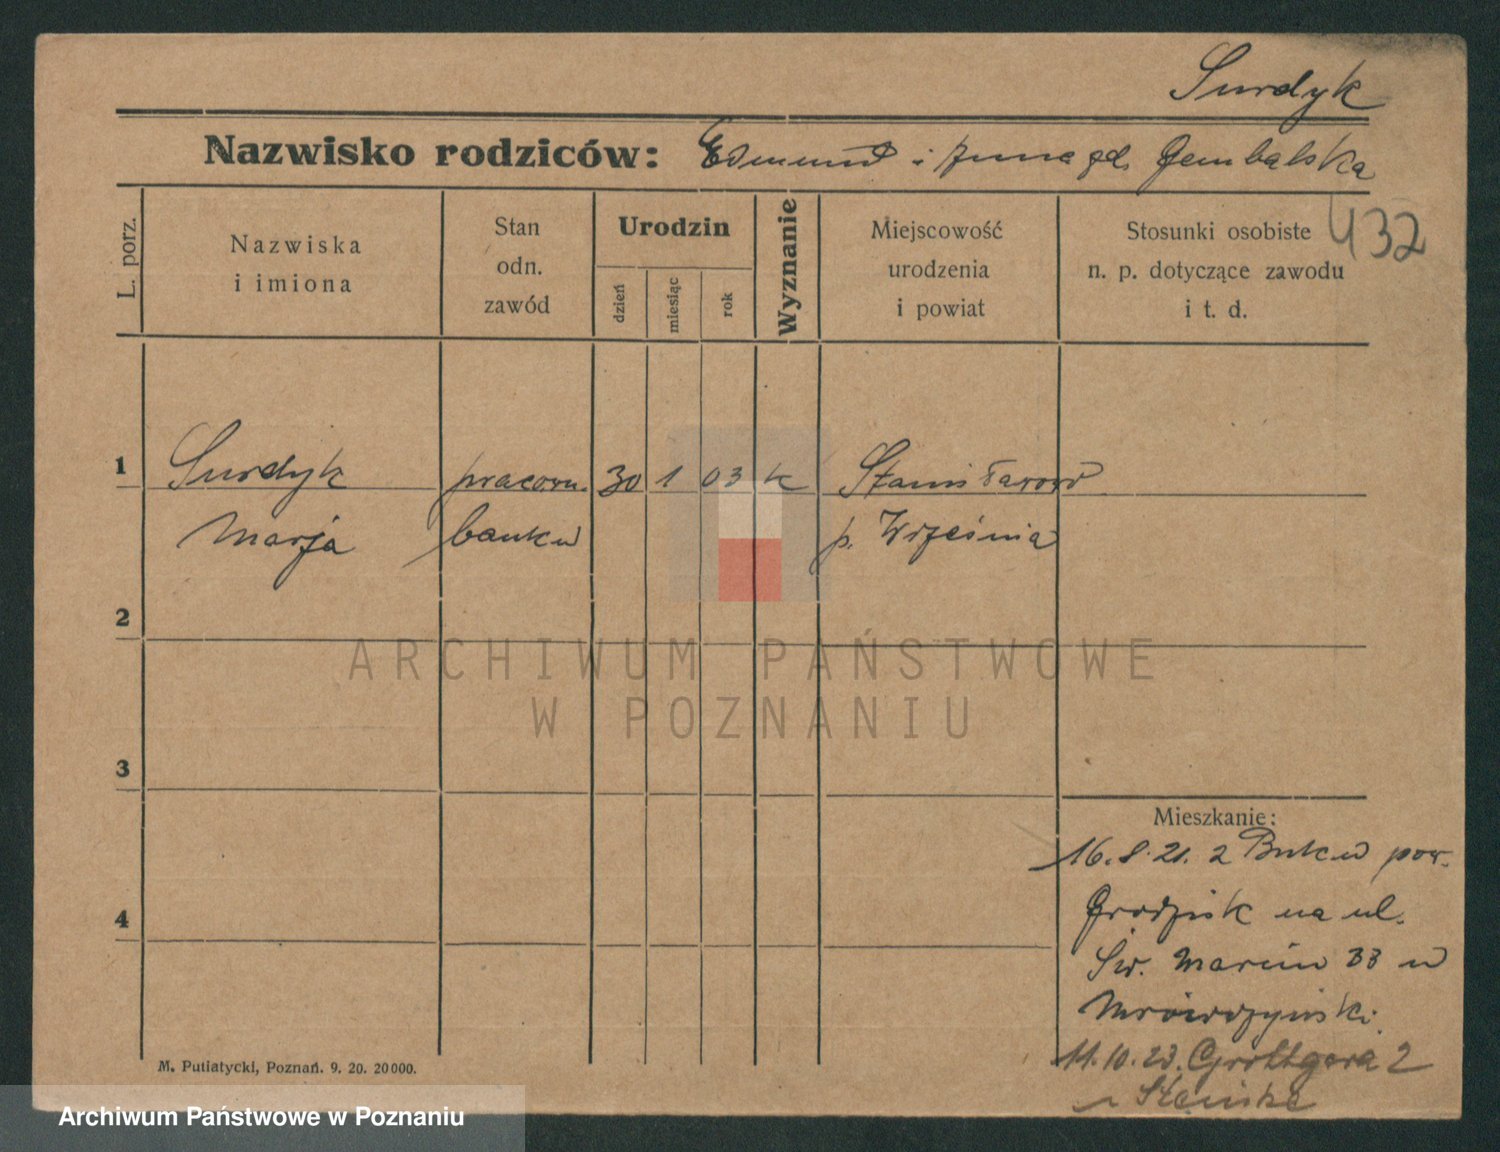 Surdyk
Nazwisko rodziców: Edmund i Gembalska
432
L. porz.
Nazwiska i imiona
Stan odn. zawód
Urodzin
dzień
miesiąc
rok
Wyznanie
Miejscowość urodzenia i powiat
Stosunki osobiste n. p. dotyczące zawodu i t. d.
1 Surdyk pracown. 30 1 03 k Stanisławowo
Marja banku p. Września
2
ARCHIWUM PAŃSTWOWE
W POZNANIU
3
Mieszkanie:
16.8.21. z Buku pow.
4
Grodzisk na ul.
Św. Marcin 33 u
11.10.23. Grottgera 2
M. Putiatycki, Poznań. 9. 20. 20000.
Archiwum Państwowe w Poznaniu